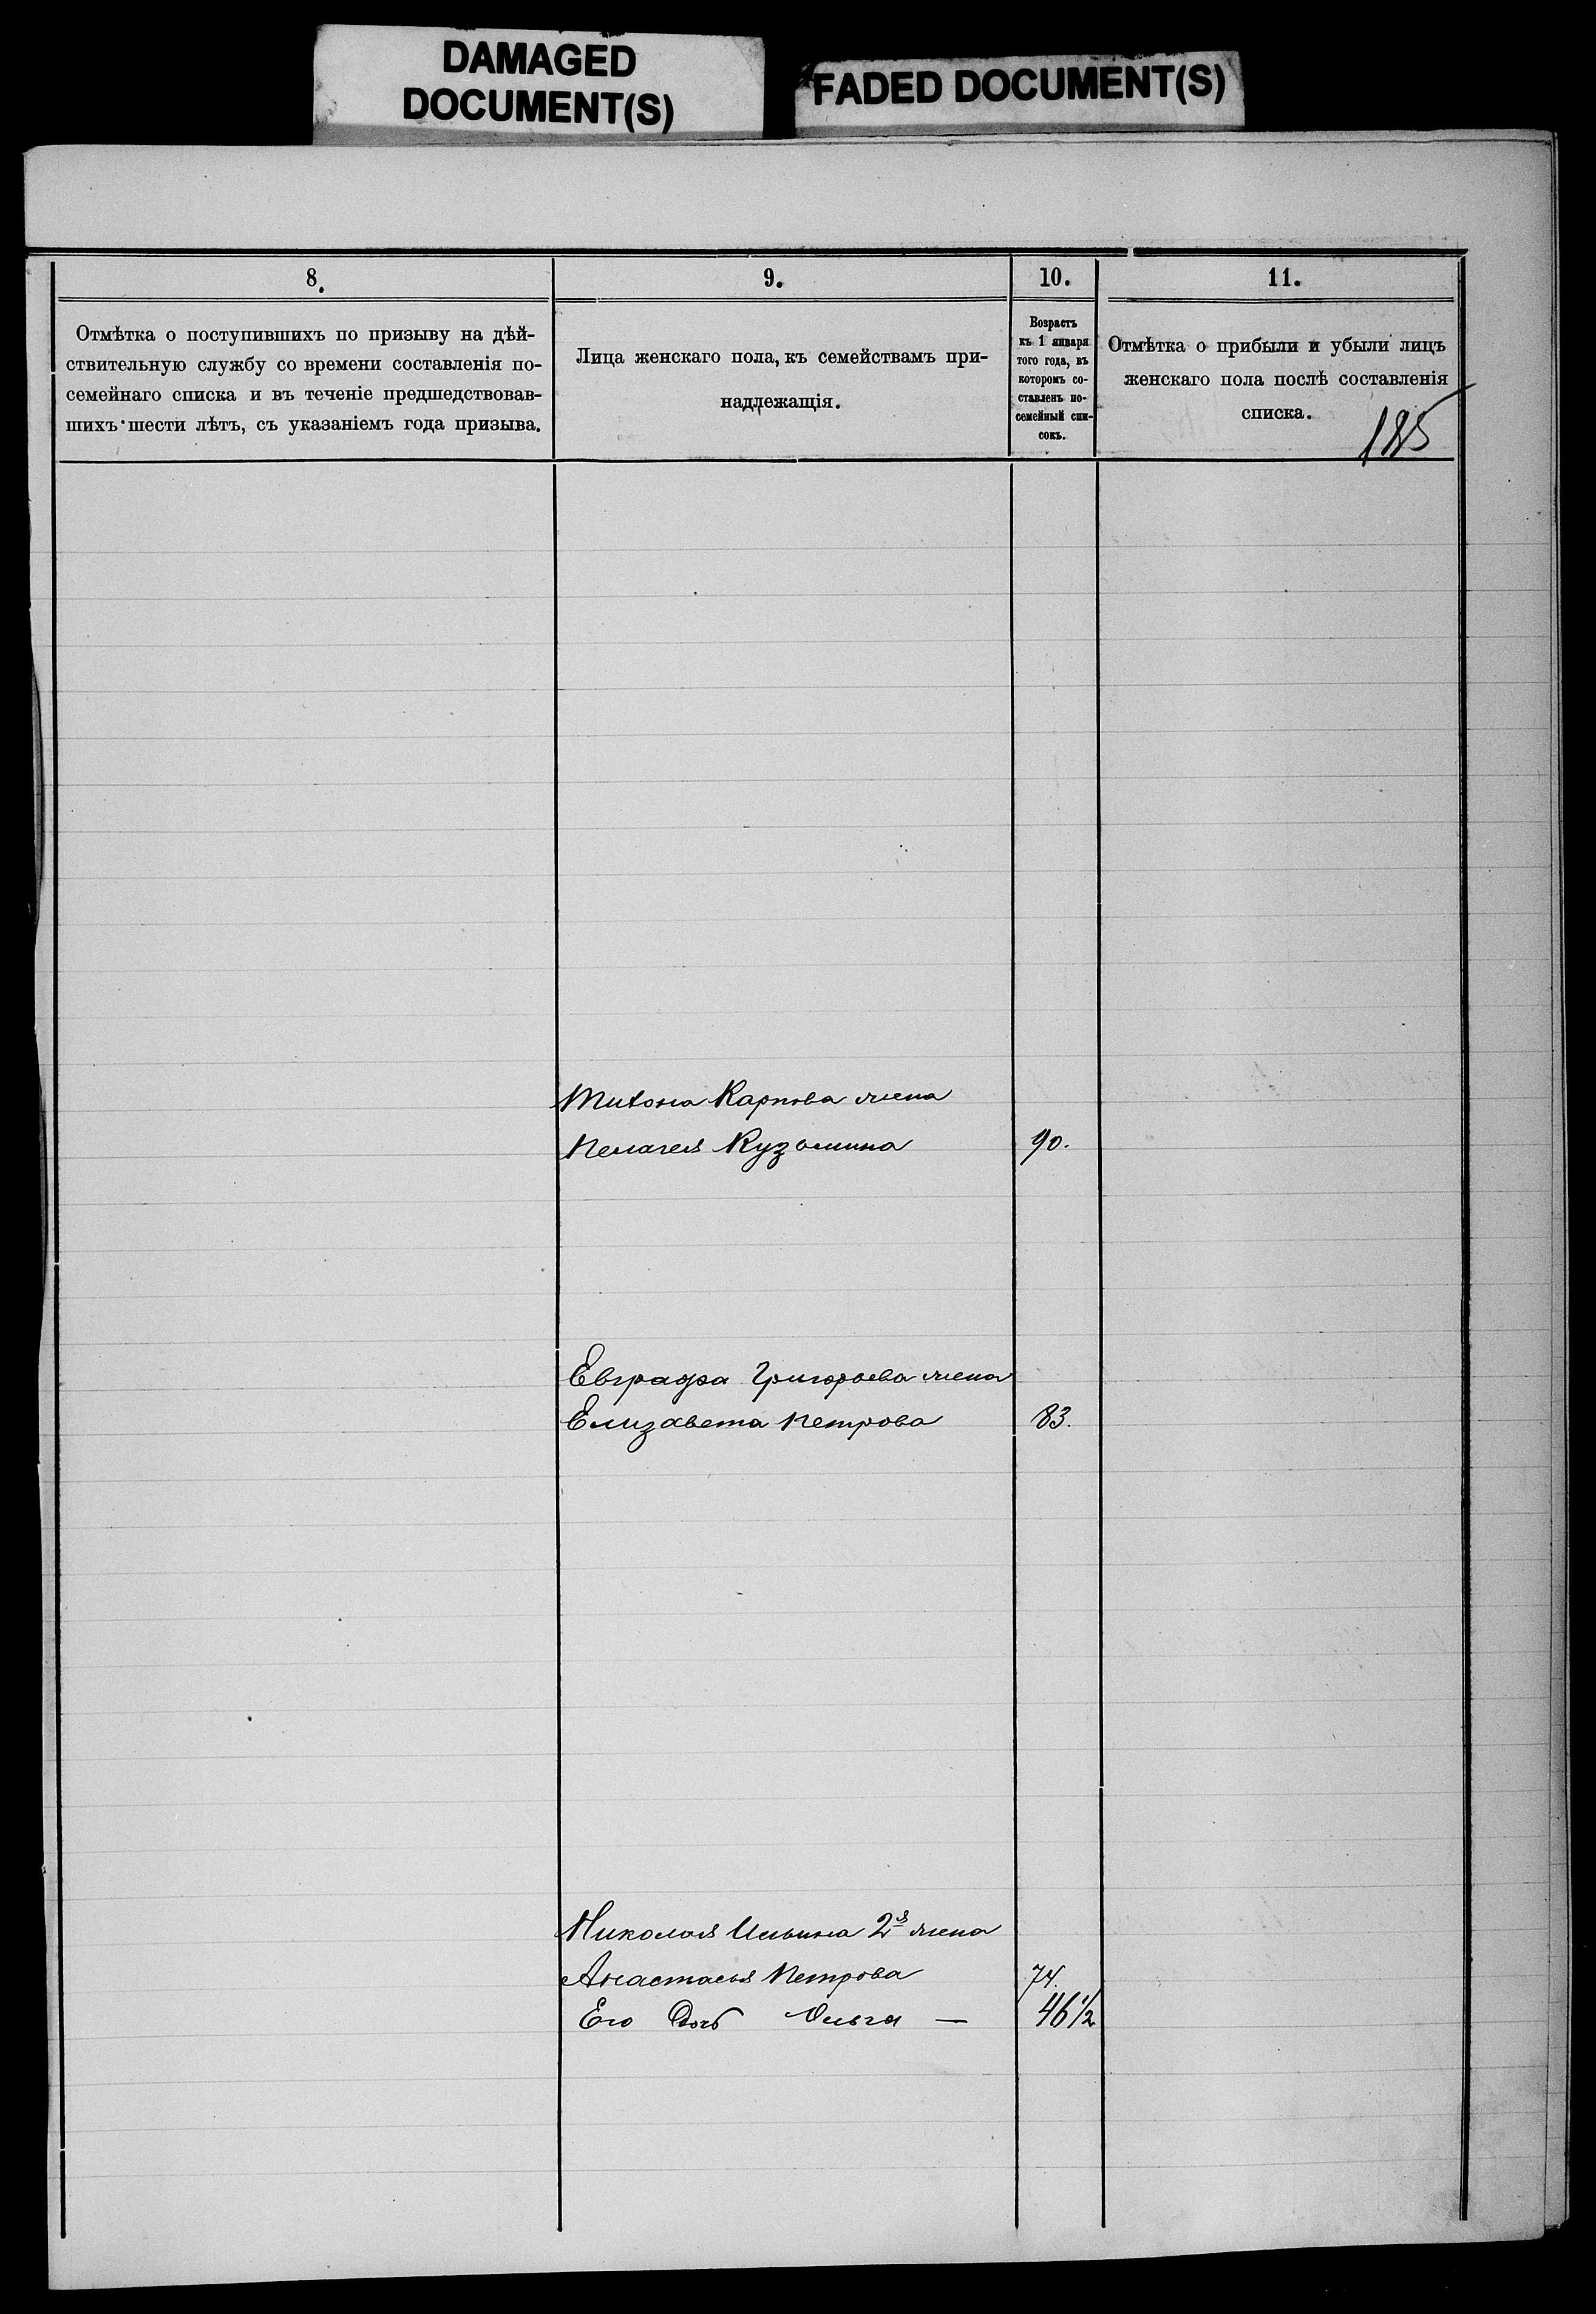 DAMAGED
DOCUMENT(S)
FADED DOCUMENT(S)
8.
9.
10.
11.
Отмѣтка о поступившихъ по призыву на дѣй-
ствительную службу со времени составленія по-
семейнаго списка и въ теченіе предшедствовав-
шихъ шести лѣтъ, съ указаніемъ года призыва.
Лица женскаго пола, къ семействамъ при-
надлежащія.
Возрастъ
къ 1 января
того года, въ
которомъ со-
ставленъ по-
семейный спи-
сокъ.
Отмѣтка о прибыли и убыли лицъ
женскаго пола послѣ составленія
списка.
185
Тихона Карпова жена
Пелагея Кузьмина 90.
Евграфа Григорьева жена
Елизавета Петрова 83.
Николая Ильина 2я жена
Анастасья Петрова 74.
Его Дочь Ольга — 46½